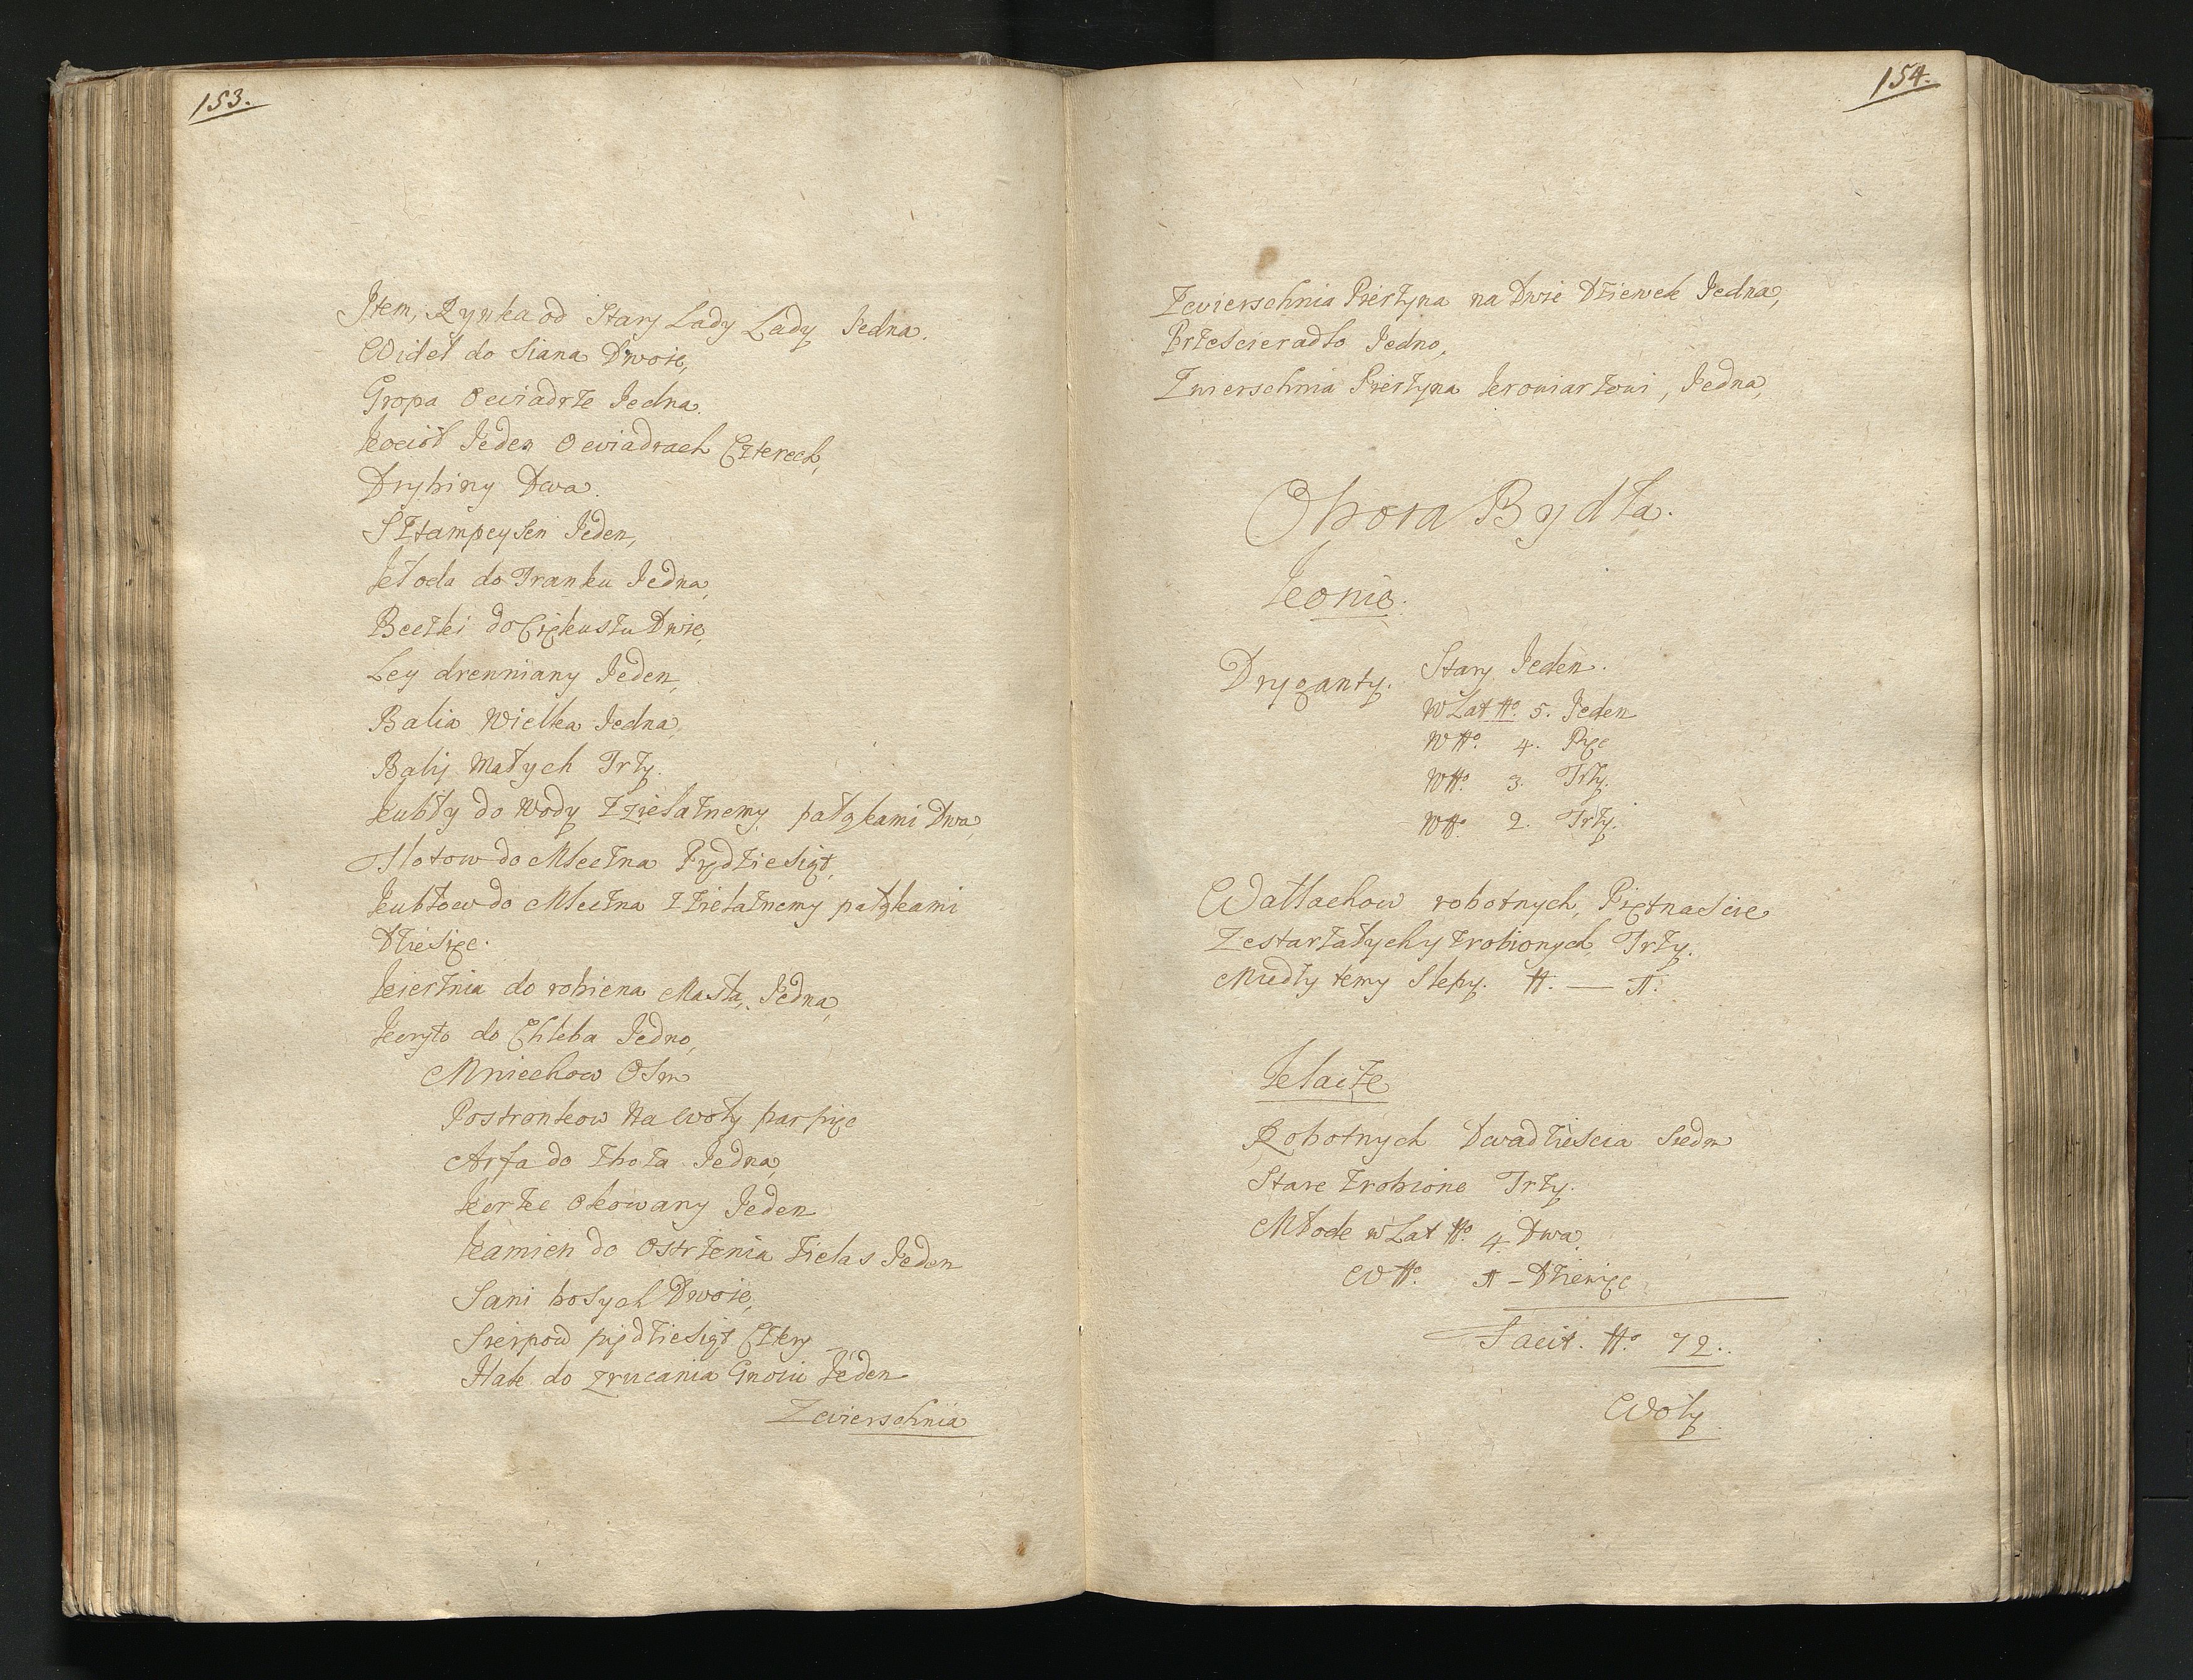 153.
Item, Rynka od Stary Lady Lady Jedna.
Wideł do Siana Dwoie,
Gropa o wiadrze Jedna.
Kocioł Jeden o wiadrach Czterech,
Drybiny Dwa.
Sztampeysen Jeden,
Kłoda do Tranku Jedna,
Beczki do Cięknstu Dwie,
Ley drewniany Jeden,
Balia Wielka Jedna,
Balij Małych Trzy.
Kubły do Wody z zielaznemy pałąkami Dwa,
Slotow do Mleczna Pydziesiąt,
Kubłow do Mleczna z zielaznemy pałąkami
Dziesięc.
Kierznia do robiena Masła, Jedna,
Koryto do Chleba Jedno,
Mniechow Osm
Postronkow Na woły par pięc
Arfa do zboża Jedna,
Korzec okowany Jeden
Kamien do Ostrzenia Zielas Jeden
Sani bosych Dwoie,
Sierpow piędziesiąt Cztery
Hak do zrucania Gnoiu Jeden
Zwierschnia
154.
Zwierschnia Pierzyna na Dwie Dziewek Jedna,
Przescieradło Jedno,
Zwierschnia Pierzyna Karowiarzowi, Jedna,
Obora Bydła.
Konie.
Dryganty. Stary Jeden.
W Lat No. 5. Jeden
W No. 4. Pięc
W No. 3. Trzy.
W No. 2. Trzy.
Wałachow robotnych, Piętnascie
Zestarzałych y zrobionych, Trzy.
Miedzy temy Slepy. N. — 1.
Klacze
Robotnych Dwadziescia Siedm
Stare zrobione Trzy.
Młode w Lat No. 4. Dwa.
W No. 1 - Dziewięc
Facit. No. 72.
Woły